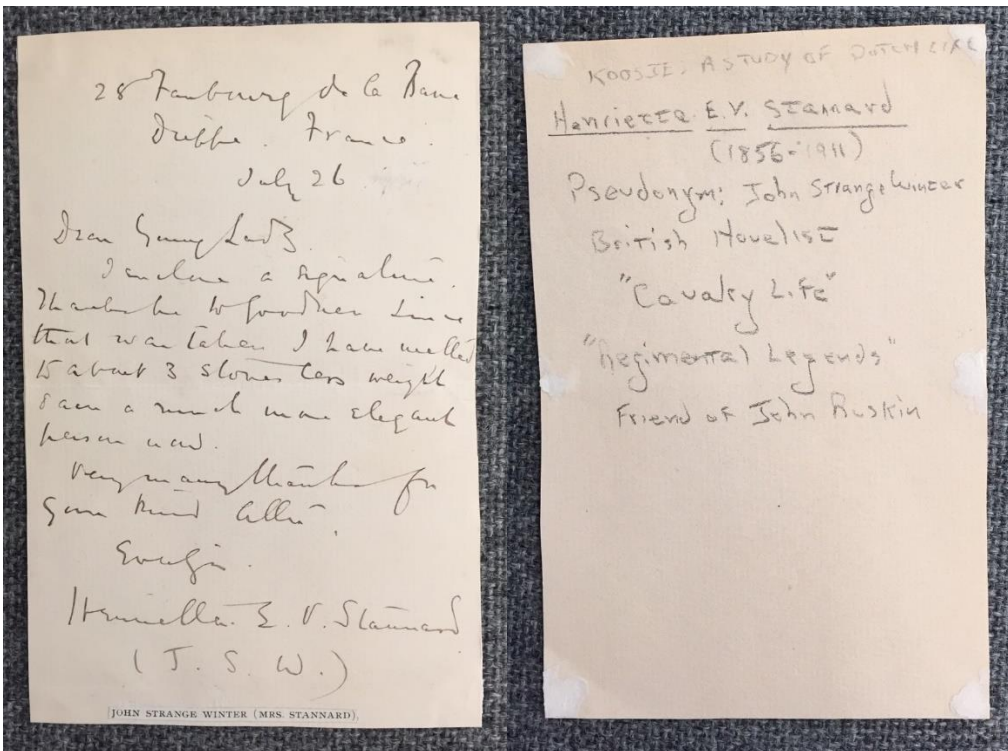 28 Faubourg de la Barre
Dieppe. France.
July 26.
Dear Young Lady
I enclose a signature.
Thanks be to goodness since
that was taken I have melted
to about 3 stones less weight
& am a much more elegant
person now.
Very many thanks for
your kind letter.
Henrietta E. V. Stannard
(J. S. W.)
JOHN STRANGE WINTER (MRS. STANNARD).
KOOSJE. A STUDY OF DUTCH LIFE
Henrietta E.V. Stannard
(1856-1911)
Pseudonym: John Strange Winter
British Novelist
"Cavalry Life"
"Regimental Legends"
Friend of John Ruskin